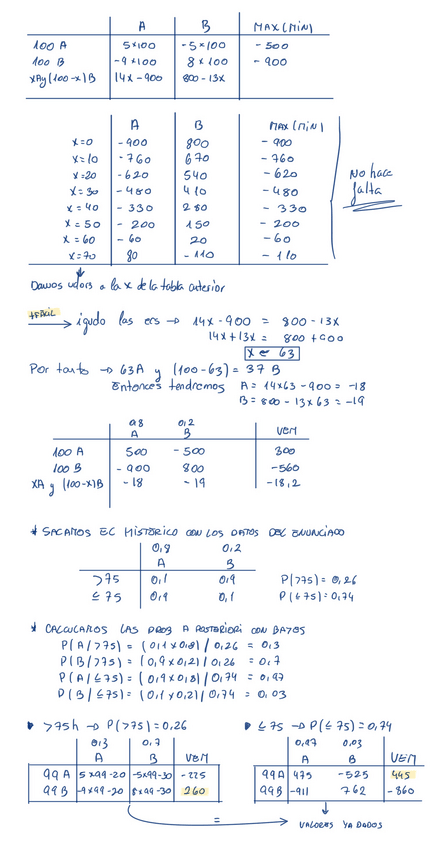 A B MAX(MIN)
100 A 5x100 -5x100 -500
100 B -9x100 8x100 -900
XAy(100-x)B 14x-900 800-13x
A B MAX(MIN)
x=0 -900 800 -900
x=10 -760 670 -760
x=20 -620 540 -620
x=30 -480 410 -480
x=40 -330 280 -330
x=50 -200 150 -200
x=60 -60 20 -60
x=70 80 -110 -110
No hace
falta
Damos valores a la x de la tabla anterior
+FÁCIL → igualo las ecs → 14x-900 = 800-13x
14x+13x = 800+900
x = 63
Por tanto → 63A y (100-63)=37B
Entonces tendremos A=14x63-900=-18
B=800-13x63=-19
0,8 0,2
A B VEM
100A 500 -500 300
100B -900 800 -560
XA y (100-x)B -18 -19 -18,2
* SACAMOS EL HISTÓRICO CON LOS DATOS DEL ENUNCIADO
0,8 0,2
A B
>75 0,1 0,9 P(>75)=0,26
≤75 0,9 0,1 P(≤75)=0,74
* CALCULAMOS LAS PROB A POSTERIORI CON BAYES
P(A/>75)=(0,1x0,8)/0,26=0,3
P(B/>75)=(0,9x0,2)/0,26=0,7
P(A/≤75)=(0,9x0,8)/0,74=0,97
P(B/≤75)=(0,1x0,2)/0,74=0,03
>75h → P(>75)=0,26
0,3 0,7
A B VEM
99A 5x99-20 -5x99-30 -225
99B -9x99-20 8x99-30 260
≤75 → P(≤75)=0,74
0,97 0,03
A B VEM
99A 475 -525 445
99B -911 762 -860
=
VALORES YA DADOS